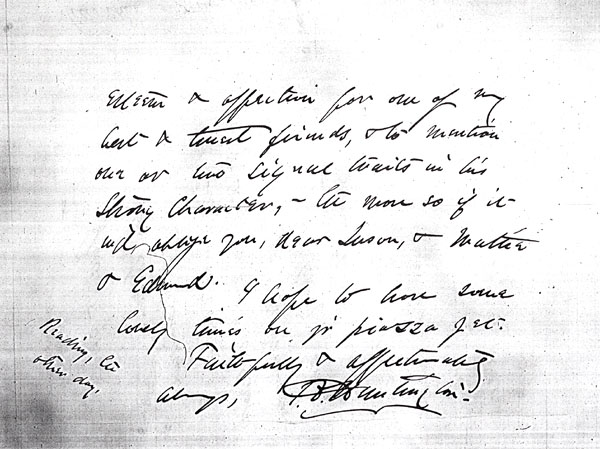 esteem & affection for one of my
best & truest friends, & to mention
one or two signal traits in his
strong character, – the more so if it
wd. oblige you, dear Susan, & Mattie
& Edward. I hope to have some
lovely times on yr piazza yet.
Faithfully & affectionately
always, Huntington.
Reading, the
other day,